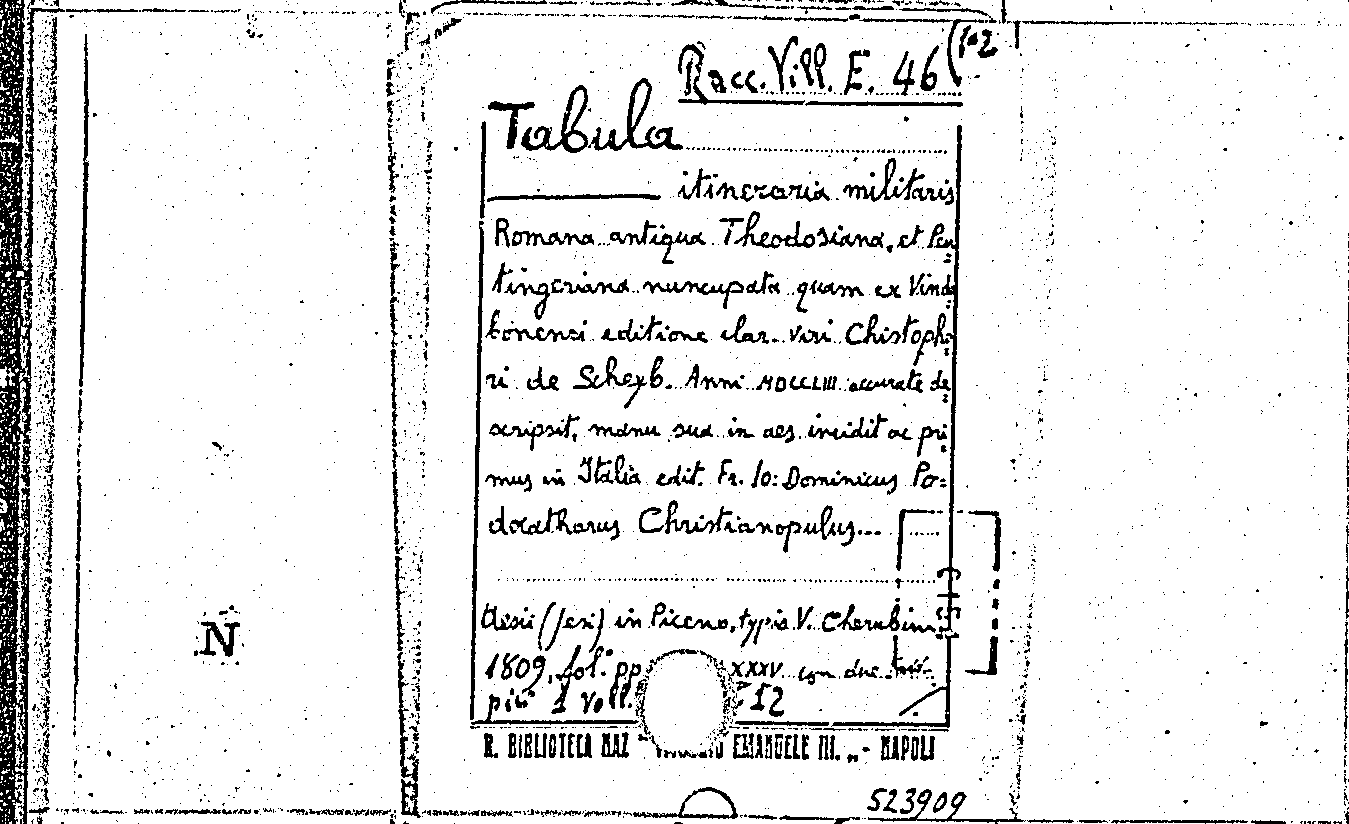 Racc. Vill. E. 46 (1-2
Tabula
itineraria militaris
Romana antiqua Theodosiana, et Peu
tingeriana nuncupata quam ex Vindo
bonensi editione clar. viri Christopho
ri de Scheyb. Anni MDCCLIII accurate de
scripsit, manu sua in aes incidit ac pri
mus in Italia edit. Fr. Io: Dominicus Po=
docatharus Christianopulus...
Aesii (Jesi) in Piceno, typis V. Cherubini
1809, fol. pp XXXV con due
più 1 Voll. 12
N
R. BIBLIOTECA NAZ EMANUELE III. „ - NAPOLI
523909